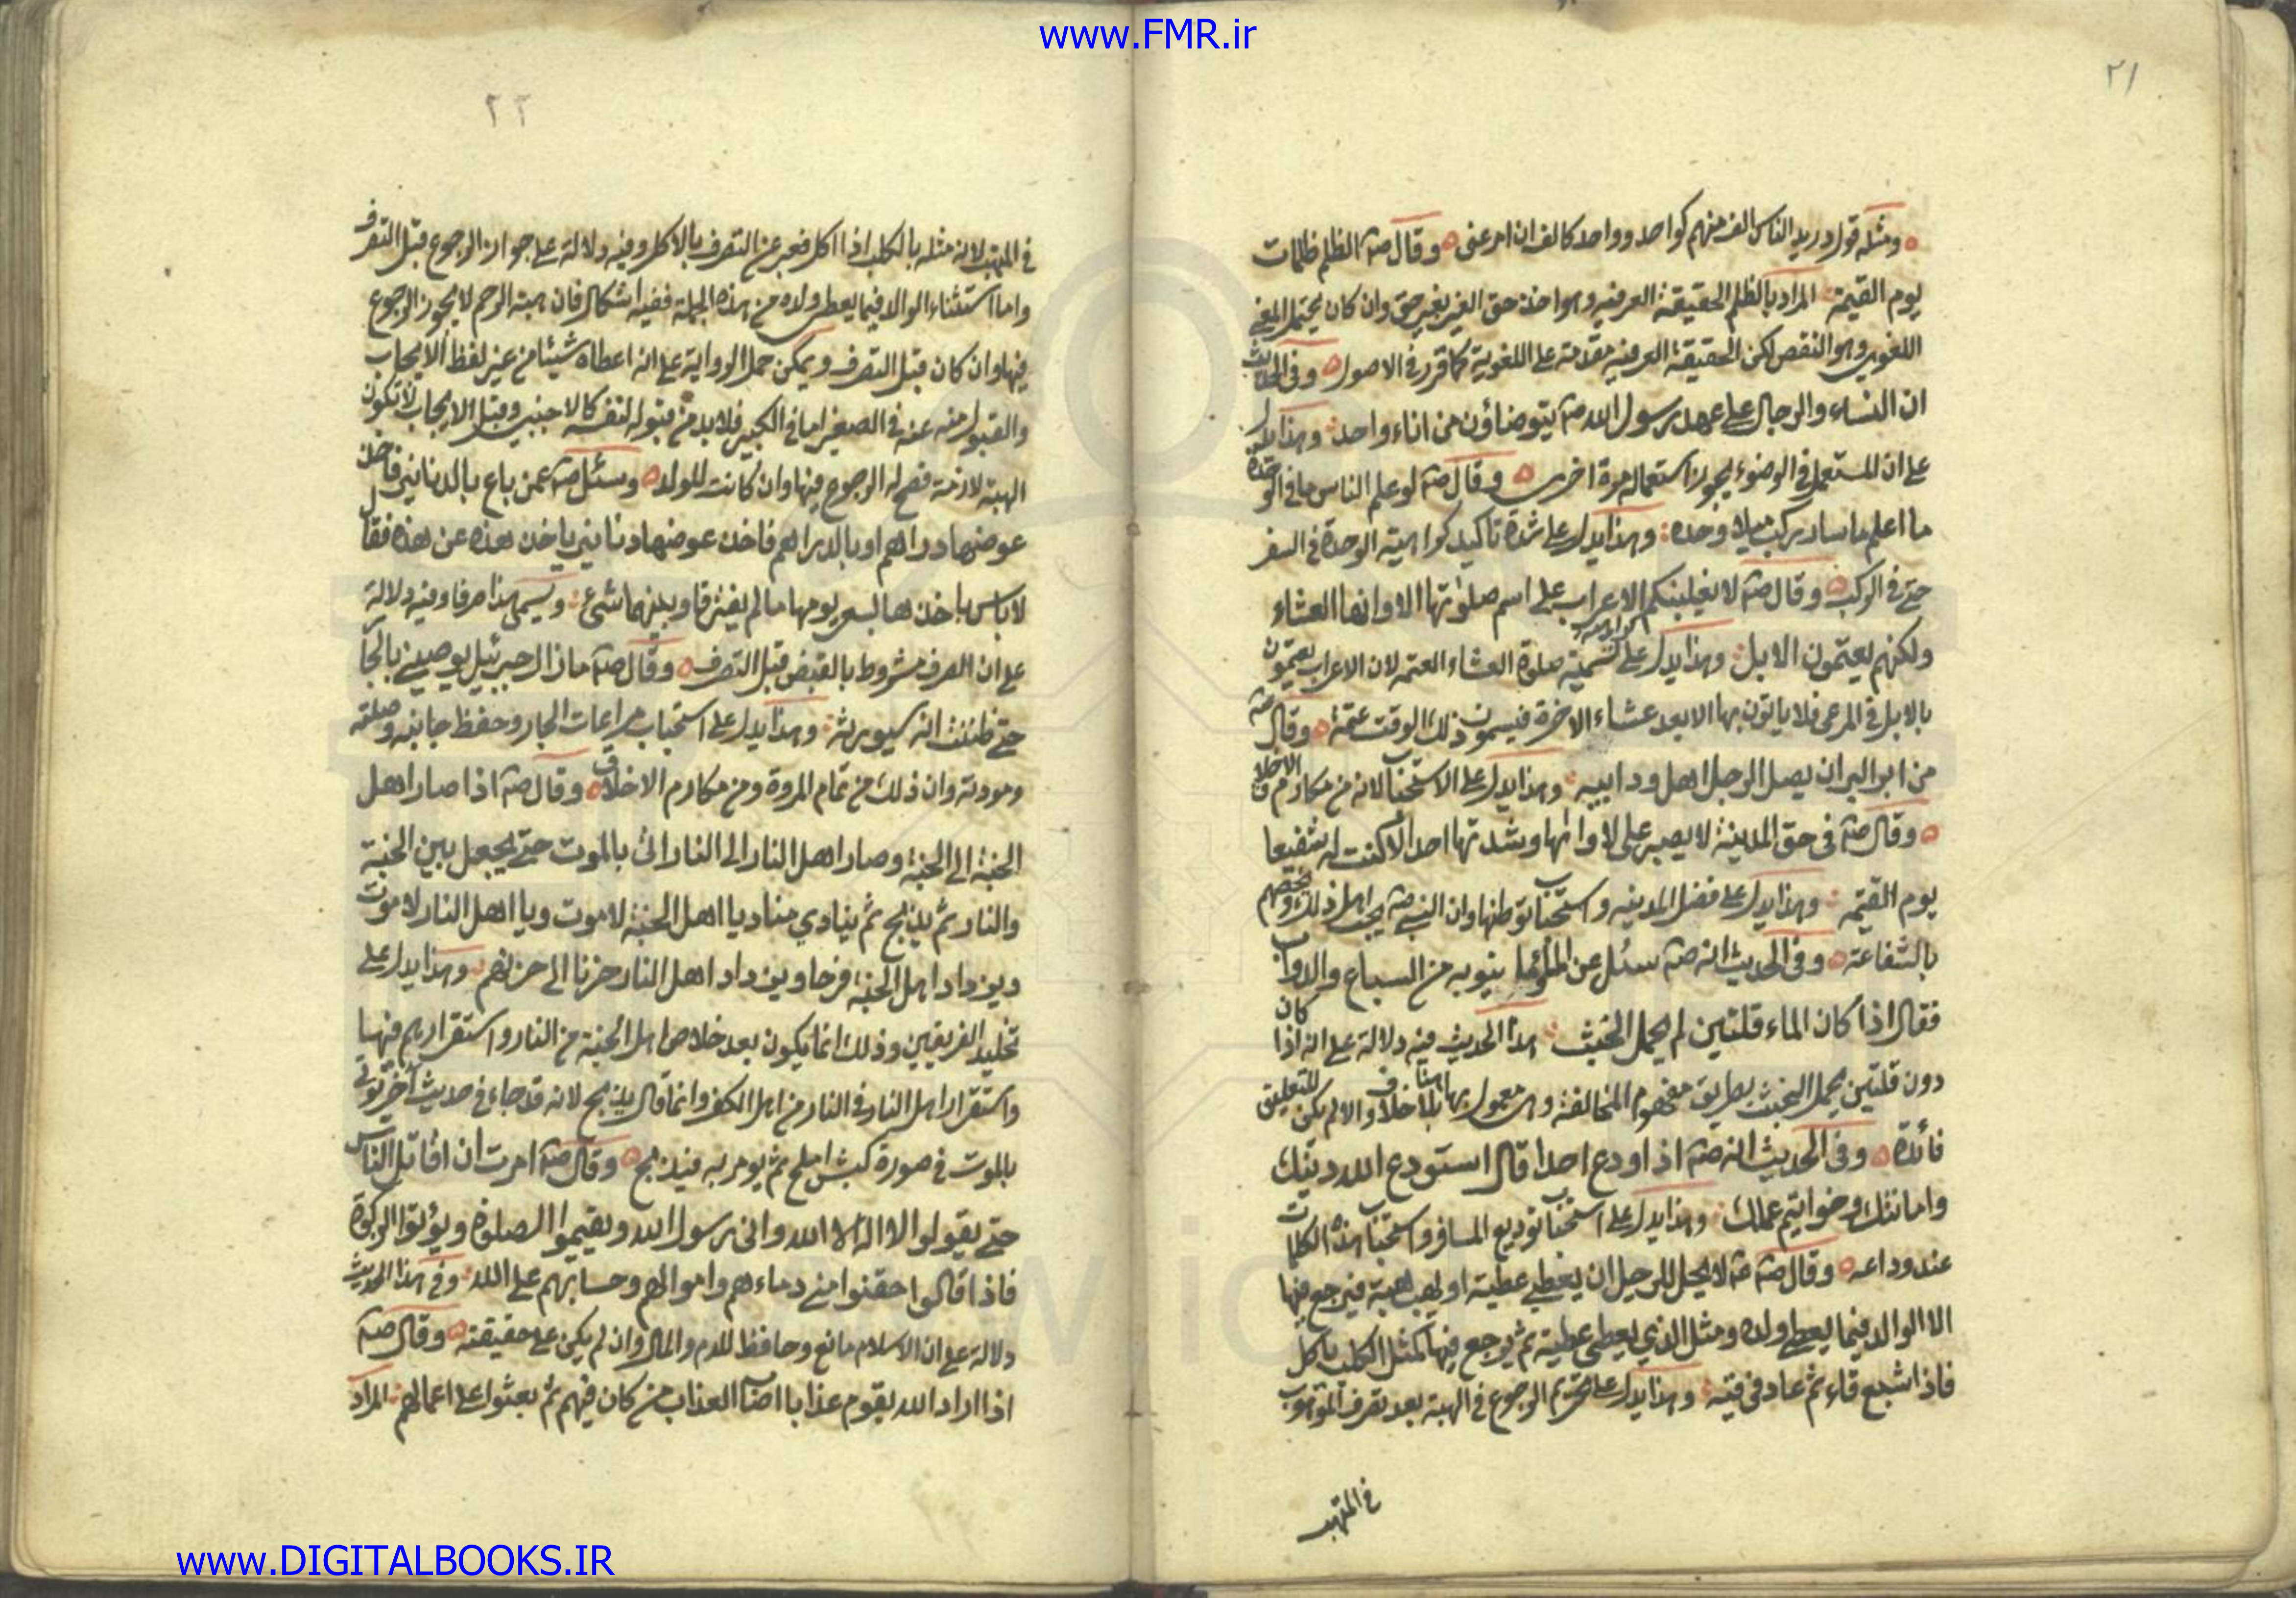 www.FMR.ir
٢١
ومثله قول دريد الناس الف منهم كواحد وواحد كالف ان امر عنى وقال صه الظلم ظلمات
يوم القيمة المراد بالظلم الحقيقة العرفيه وهو اخذ حق الغير بغير حق وان كان يحتمل المعنى
اللغوى وهو النقص لكن الحقيقة العرفيه مقدمة على اللغوية كما قرر فى الاصول وفى الحديث
ان النساء والرجال على عهد رسول الله صه يتوضاؤن من اناء واحد وهذا يدل
على ان المستعمل فى الوضوء يجوز استعماله مرة اخرى وقال صه لو علم الناس ما فى الوحدة
ما اعلم ما سار ركب بليلا وحده وهذا يدل على شدة تاكيد كراهية الوحدة فى السفر
حتى فى الركب وقال صه لا يغلبنكم الاعراب على اسم صلوتها الا وانها العشاء
ولكنهم يعتمون الابل وهذا يدل على كراهة تسمية صلوة العشاء العتمه لان الاعراب يعتمون
بالابل فى المرعى فلا ياتون بها الا بعد عشاء الاخرة فيسمون ذلك الوقت عتمة وقال صه
من ابر البر ان يصل الرجل اهل ود ابيه وهذا يدل على الاستحباب لانه من مكارم الاخلاق
وقال صه فى حق المدينة لا يصبر على لاوائها وشدتها احد الا كنت له شفيعا
يوم القيمة وهذا يدل على فضل المدينه واستحباب توطنها وان النبى صه يحب اهل ذلك ويخصهم
بالشفاعة وفى الحديث انه صه سئل عن الماء وما ينوبه من السباع والدواب
فقال اذا كان الماء قلتين لم يحمل الخبث هذا الحديث فيه دلالة على انه اذا كان
دون قلتين يحمل الخبث بطريق مفهوم المخالفة وهى معمول بها هنا بلا خلاف والا لم يكن للتعليق
فائدة وفى الحديث انه صه اذ اودع احدا قال استودع الله دينك
وامانتك وخواتيم عملك وهذا يدل على استحباب توديع المسافر واستحباب هذه الكلمات
عند وداعه وقال صه لا يحل للرجل ان يعطى عطية او يهب هبة فيرجع فيها
الا الوالد فيما يعطى ولده ومثل الذي يعطى عطية ثم يرجع فيها كمثل الكلب ياكل
فاذا شبع قاء ثم عاد فى قيئه وهذا يدل على تحريم الرجوع فى الهبة بعد تصرف الموهوب
فى المتهب
٢٢
فى المتهب لانه مثله بالكلب اذا اكل فعبر عن التصرف بالاكل وفيه دلالة على جواز الرجوع قبل التصرف
واما استثناء الوالد فيما يعطى ولده من هذه الجملة ففيه اشكال فان هبة الرحم لا يجوز الرجوع
فيها وان كان قبل التصرف ويمكن حمل الرواية على انه اعطاه شيئا من غير لفظ الايجاب
والقبول منه عنه فى الصغير اما فى الكبير فلابد من قبوله لنفسه كالاجنبى وقبل الايجاب لا تكون
الهبة لازمة فصح له الرجوع فيها وان كانت للولد وسئل صه عمن باع بالدنانير فاخذ
عوضها دراهم او بالدراهم فاخذ عوضها دنانير ياخذ هذه عن هذه فقال
لا باس باخذها بسعر يومها ما لم يفترقا وبينهما شئ ويسمى هذا صرفا وفيه دلالة
على ان الصرف مشروط بالقبض قبل التصرف وقال صه ما زال جبرئيل يوصينى بالجار
حتى ظننت انه سيورثه وهذا يدل على استحباب مراعات الجار وحفظ جانبه وصلته
ومودته وان ذلك من تمام المروة ومن مكارم الاخلاق وقال صه اذا صار اهل
الجنة الى الجنة وصار اهل النار الى النار اتى بالموت حتى يجعل بين الجنة
والنار ثم يذبح ثم ينادي مناد يا اهل الجنة لا موت ويا اهل النار لا موت
ويزداد اهل الجنة فرحا ويزداد اهل النار حزنا الى حزنهم وهذا يدل على
تخليد الفريقين وذلك انما يكون بعد خلاص اهل الجنة من النار واستقرارهم فيها
واستقرار اهل النار فى النار من اهل الكفر وانما قال يذبح لانه قد جاء فى حديث اخر يؤتى
بالموت فى صورة كبش املح ثم يومر به فيذبح وقال صه امرت ان اقاتل الناس
حتى يقولوا لا اله الا الله وانى رسول الله ويقيموا الصلوة ويؤتوا الزكوة
فاذا قالوا حقنوا منى دماءهم واموالهم وحسابهم على الله وفى هذا الحديث
دلالة على ان الاسلام مانع وحافظ للدم والمال وان لم يكن على حقيقته وقال صه
اذا اراد الله بقوم عذابا اصاب العذاب من كان فيهم ثم بعثوا على اعمالهم المراد
www.DIGITALBOOKS.IR